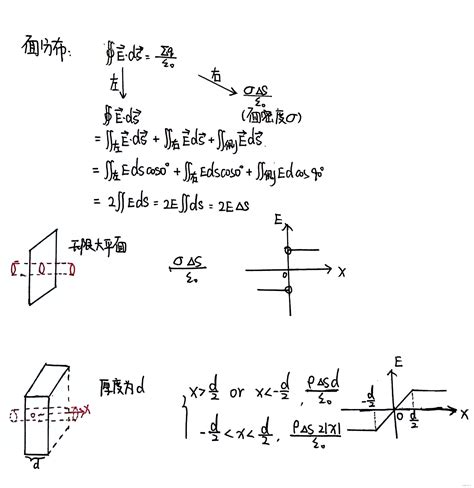 面分布: ∯E⃗·dS⃗ = Σq/ε₀
左 右
σΔS/ε₀
(面密度σ)
∯E⃗·dS⃗
= ∬左E⃗·dS⃗ + ∬右E⃗dS⃗ + ∬侧E⃗dS⃗
= ∬左Edscos0° + ∬右Edscos0° + ∬侧Edcos90°
= 2∬Eds = 2E∬ds = 2EΔS
无限大平面 σΔS/ε₀
E
0 X
厚度为d
x>d/2 or x<-d/2, ρΔSd/ε₀
-d/2<x<d/2, ρΔS2|x|/ε₀
x
d
E
-d/2 0 d/2 X